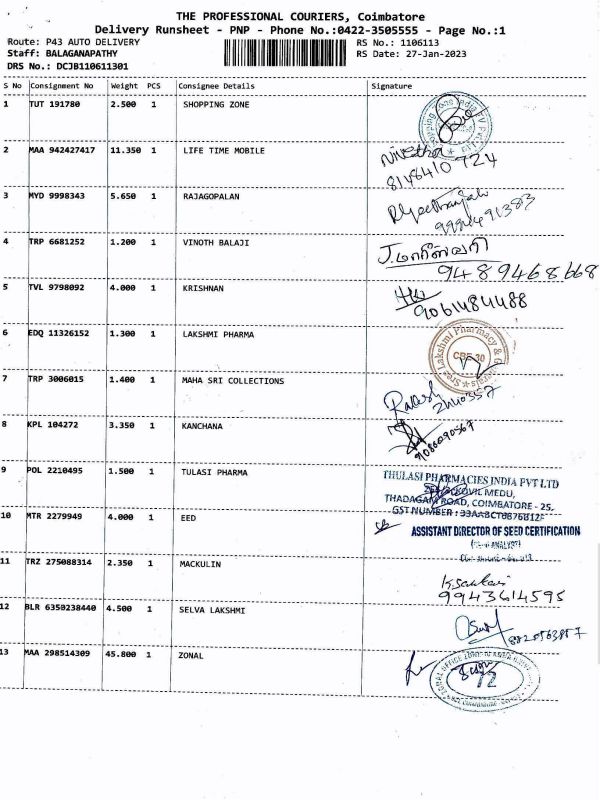 THE PROFESSIONAL COURIERS, Coimbatore
Delivery Runsheet - PNP - Phone No.:0422-3505555 - Page No.:1
Route: P43 AUTO DELIVERY
RS No.: 1106113
Staff: BALAGANAPATHY
RS Date: 27-Jan-2023
DRS No.: DCJB110611301
S No Consignment No Weight PCS Consignee Details Signature
1 TUT 191780 2.500 1 SHOPPING ZONE
2 MAA 942427417 11.350 1 LIFE TIME MOBILE
Nivetha
8148410 724
3 MYD 9998343 5.650 1 RAJAGOPALAN
4 TRP 6681252 1.200 1 VINOTH BALAJI
J.மாரீஸ்வரி
9489468668
5 TVL 9798092 4.000 1 KRISHNAN
9061484488
6 EDQ 11326152 1.300 1 LAKSHMI PHARMA
Sree Lakshmi Pharmacy &
CBE-30
7 TRP 3006015 1.400 1 MAHA SRI COLLECTIONS
8 KPL 104272 3.350 1 KANCHANA
9080090567
9 POL 2210495 1.500 1 TULASI PHARMA
THULASI PHARMACIES INDIA PVT LTD
KOVIL MEDU,
THADAGAM ROAD, COIMBATORE - 25.
GST NUMBER :
10 MTR 2279949 4.000 1 EED
ASSISTANT DIRECTOR OF SEED CERTIFICATION
11 TRZ 275088314 2.350 1 MACKULIN
K.Sankari
9943614595
12 BLR 6350238440 4.500 1 SELVA LAKSHMI
13 MAA 298514309 45.800 1 ZONAL